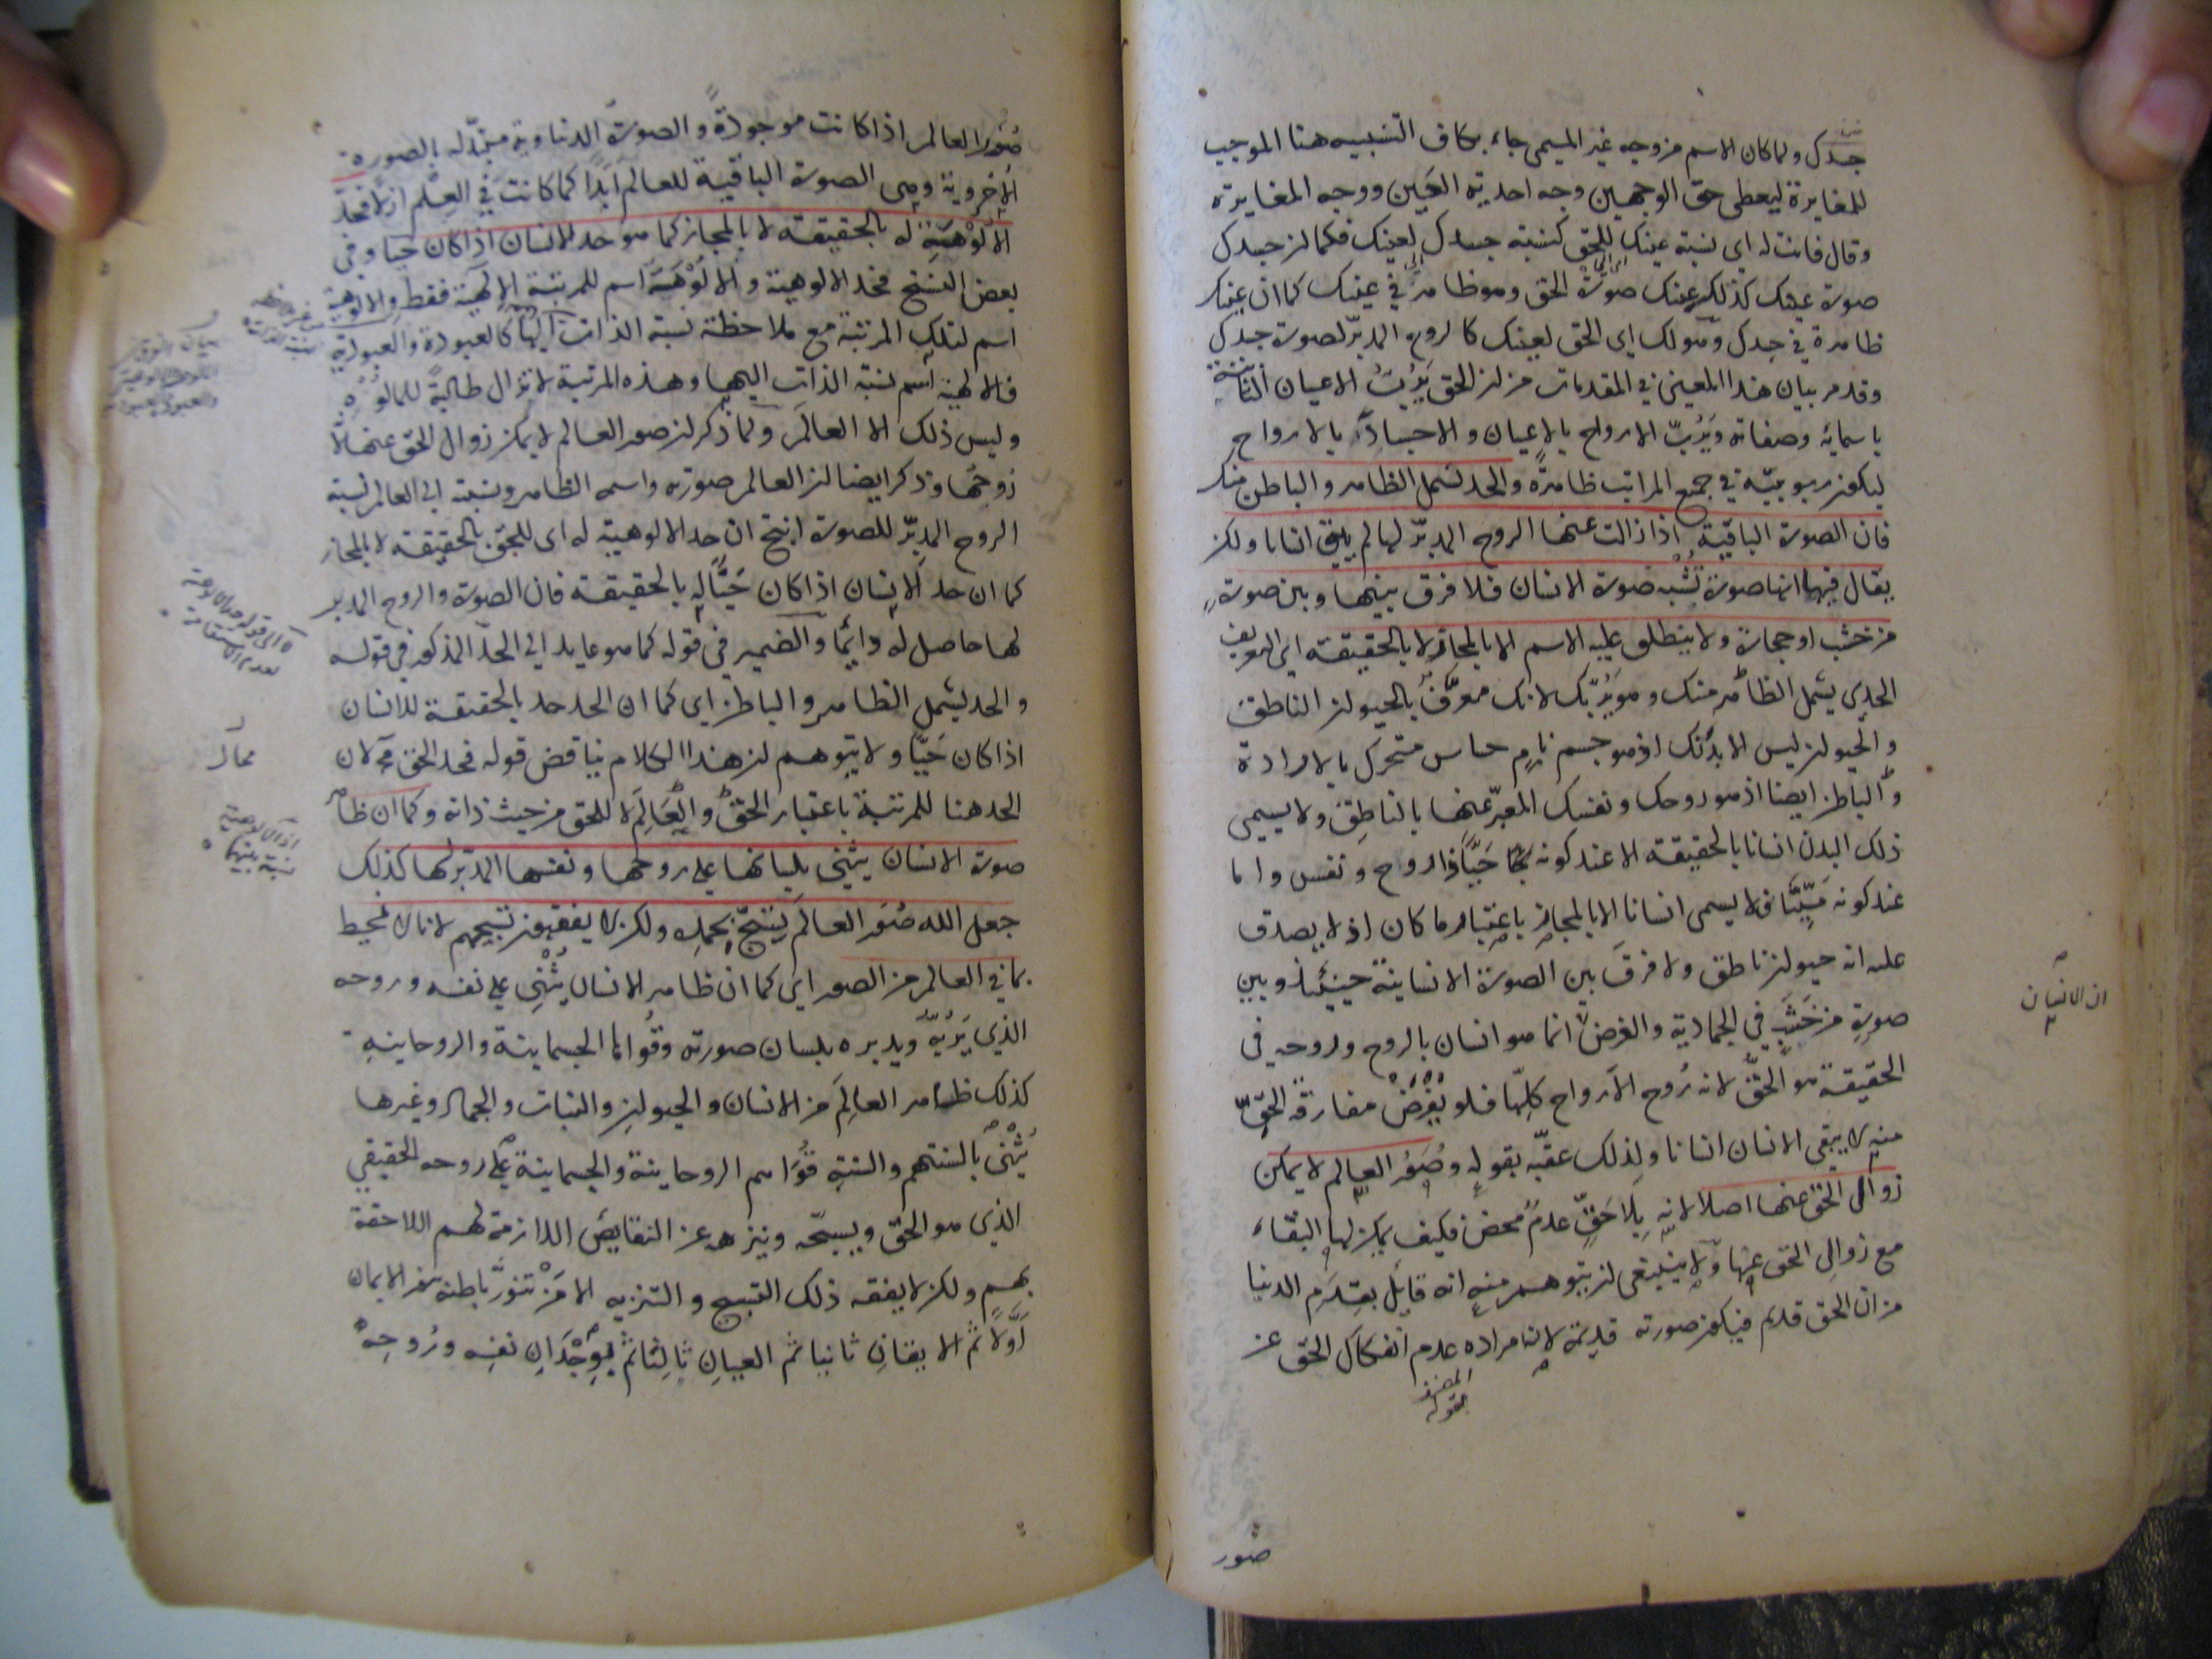 جسدك ولما كان الاسم من وجه غير المسمى جاء بكاف التشبيه هنا الموجب
للمغايرة ليعطى حق الوجهين وجه احدية العين ووجه المغايرة
وقال فانت له اى نسبة عينك للحق كنسبة جسدك لعينك فكما ان جسدك
صورة عينك كذلك عينك صورة الحق وهو ظاهر فى عينك كما ان عينك
ظاهرة فى جسدك وهو لك اى الحق لعينك كالروح المدبر لصورة جسدك
وقد مر بيان هذا المعنى فى المقدمات من ان الحق يَرُبّ الاعيان الثابتة
باسمائه وصفاته ويَرُبّ الارواح بالاعيان والاجساد بالارواح
ليكون ربوبيته فى جميع المراتب ظاهرة والحد يشمل الظاهر والباطن منك
فان الصورة الباقية اذا زالت عنها الروح المدبر لها لم يبق انسانا ولكن
يقال فيها انها صورة تُشبه صورة الانسان فلا فرق بينها وبين صورةٍ
من خشب او حجارة ولا ينطلق عليه الاسم الا بالمجاز لا بالحقيقة اى التعريف
الحدى يشمل الظاهر منك وهو بدنك لانك معرَّف بالحيوان الناطق
والحيوان ليس الا بدنك اذ هو جسم نامٍ حساس متحرك بالارادة
والباطن ايضا اذ هو روحك ونفسك المعبر عنها بالناطق ولا يسمى
ذلك البدن انسانا بالحقيقة الا عند كونه حَيّاً ذا روح ونفس واما
عند كونه مَيّتًا فلا يسمى انسانا الا بالمجاز باعتبار ما كان اذ لا يصدق
عليه انه حيوان ناطق ولا فرقَ بين الصورة الانسانية حينئذ وبين
صورةٍ من خَشَبٍ فى الجمادية والغرض انما هو انسان بالروح وروحه فى
ان الانسان
الحقيقة هو الحقُّ لانه رُوح الارواح كلها فلو يُفْرَضُ مفارقة الحقّ
منه لا يبقى الانسان انسانا ولذلك عقّبه بقوله وصُوَرُ العالم لا يمكن
زوال الحق عنها اصلا لانه بلا حَقّ عدمٌ محض فكيف يمكن لها البقاء
مع زوال الحق عنها ولا ينبغى ان يتوهم منه انه قايل بقِدَم الدنيا
من ان الحق قديم فيكون صورته قديمة لان مراده عدم انفكاك الحق عن
صور
صُوَر العالم اذا كانت موجودةً والصورة الدنياوية متبدّلة بالصورة
الاُخروية وهى الصورة الباقية للعالم ابدًا كما كانت فى العِلْم ازلا فحدّ
الالُوْهَيّة له بالحقيقة لا بالمجاز كما هو حد للانسان اذا كان حيا وفى
بعض النسخ فحد الالوهية والالُوْهَيَّة اسم للمرتبة الالهية فقط والالوهية
اسم لتلك المرتبة مع ملاحظة نسبة الذات اليها كالعبودة والعبودية
فالالهية اسم نسبة الذات اليها وهذه المرتبة لا تزال طالبةً للمالُوْه
وليس ذلك الا العالمَ ولما ذكر ان صور العالم لا يمكن زوال الحق عنها
رُوحُها وذكر ايضا ان العالم صورته واسمه الظاهر ونسبته الى العالم نسبة
الروح المدبّر للصورة انتج ان حد الالوهية له اى للحق بالحقيقة لا بالمجاز
كما ان حد الانسان اذا كان حَيّاً له بالحقيقة فان الصورة والروح المدبر
لها حاصل له دايمًا والضمير فى قوله كما هو عايد الى الحدّ المذكور فى قوله
والحد يشمل الظاهر والباطن اى كما ان الحد حد بالحقيقة للانسان
اذا كان حَيًّا ولا يتوهم ان هذا الكلام يناقض قوله فحد الحق محال لان
محال
الحد هنا للمرتبة باعتبار الحقّ والعالَم لا للحق من حيث ذاته وكما ان ظاهر
صورة الانسان يثنى بلسانها على روحها ونفسها المدبّر لها كذلك
جعل الله صُوَر العالَم يُسَبّح بحمده ولكن لا يفقهون تسبيحهم لانا لا نحيط
بما فى العالم من الصور اى كما ان ظاهر الانسان يُثْنِى على نفسه وروحه
الذى يَرُبّه ويدبره بلسان صورته وقُواها الجسمانية والروحانية
كذلك ظاهر العالَم من الانسان والحيوان والنبات والجماد وغيرها
يُثْنى بالسنتهم والسنة قُوَاهم الروحانية والجسمانية على روحه الحقيقى
الذى هو الحقّ ويسبّحه وينزهه عن النقايص اللازمة لهم اللاحقة
بهم ولكن لا يفقه ذلك التسبيح والتنزيه الا مَنْ تنوّر باطنه بنور الايمان
اوّلاً ثم الايقان ثانيا ثم العيان ثالثا ثم بوِجْدَانِ نفسه ورُوحِه